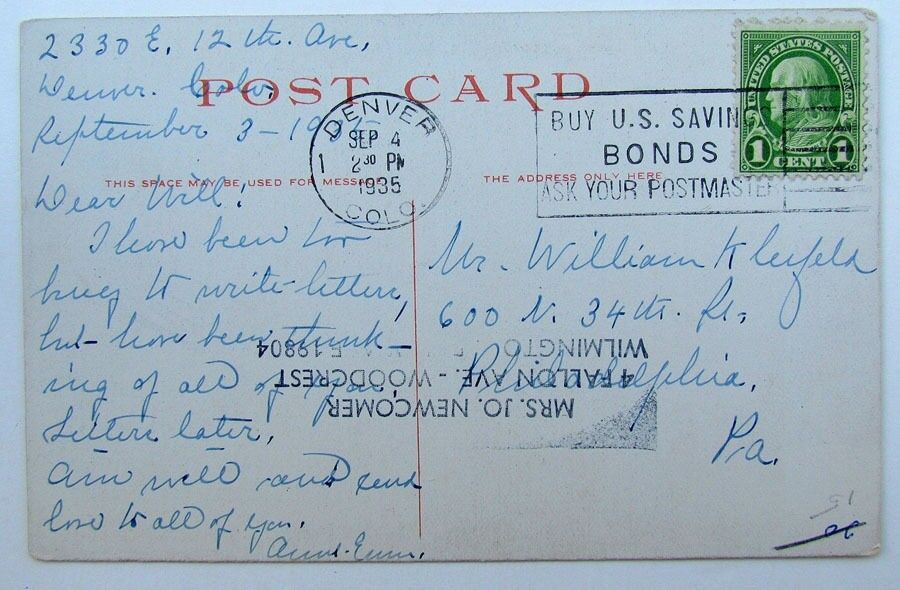 2330 E. 12th. Ave,
Denver. Colo,
September 3-1935
POST CARD
DENVER
SEP 4
2 30 PM
1935
COLO.
BUY U.S. SAVIN
BONDS
ASK YOUR POSTMASTER
UNITED STATES POSTAGE
1 CENT 1
THIS SPACE MAY BE USED FOR MESS
THE ADDRESS ONLY HERE
Dear Will:
I have been too
busy to write letters,
but have been think-
ing of all of you.
Letters later,
Am well and send
love to all of you.
Aunt Emm.
Mr. William Kleifeld
600 N. 34th. St.
Philadelphia,
Pa.
MRS. JO. NEWCOMER
4 FALLON AVE. - WOODCREST
WILMINGTON 19804